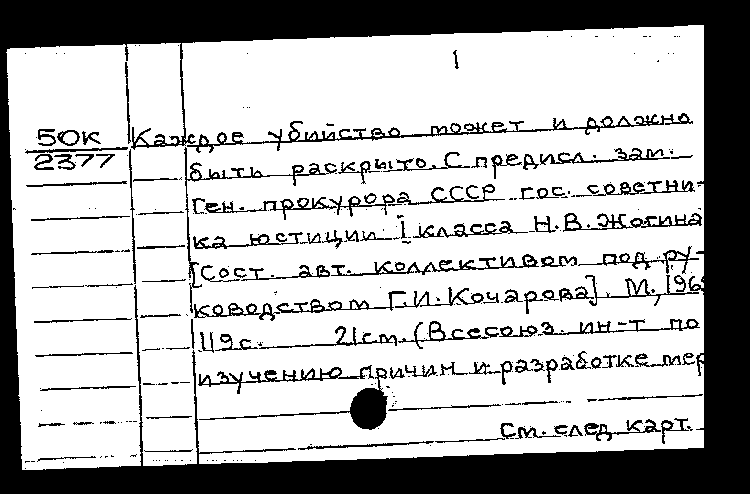 1
50К Каждое убийство может и должно
2377 быть раскрыто. С предисл. зам.
Ген. прокурора СССР гос. советни-
ка юстиции I класса Н.В. Жогина
[Сост. авт. коллективом под ру-
ководством Г.И. Кочарова]. М., 196
119с. 21см. (Всесоюз. ин-т по
изучению причин и разработке мер
См. след. карт.